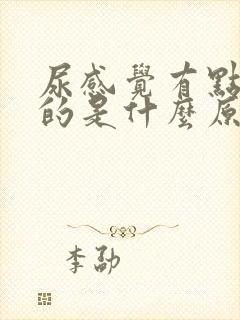 尿感覺有點
的是什麼原
李劭